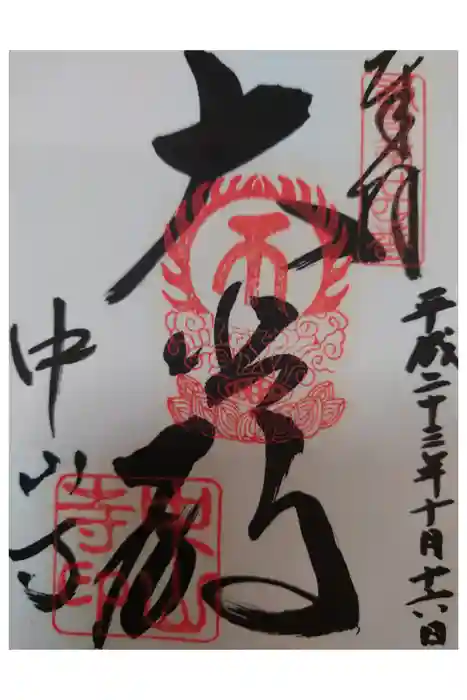 奉拝
平成二十三年十月十六日
大悲殿
中山寺
中山寺印